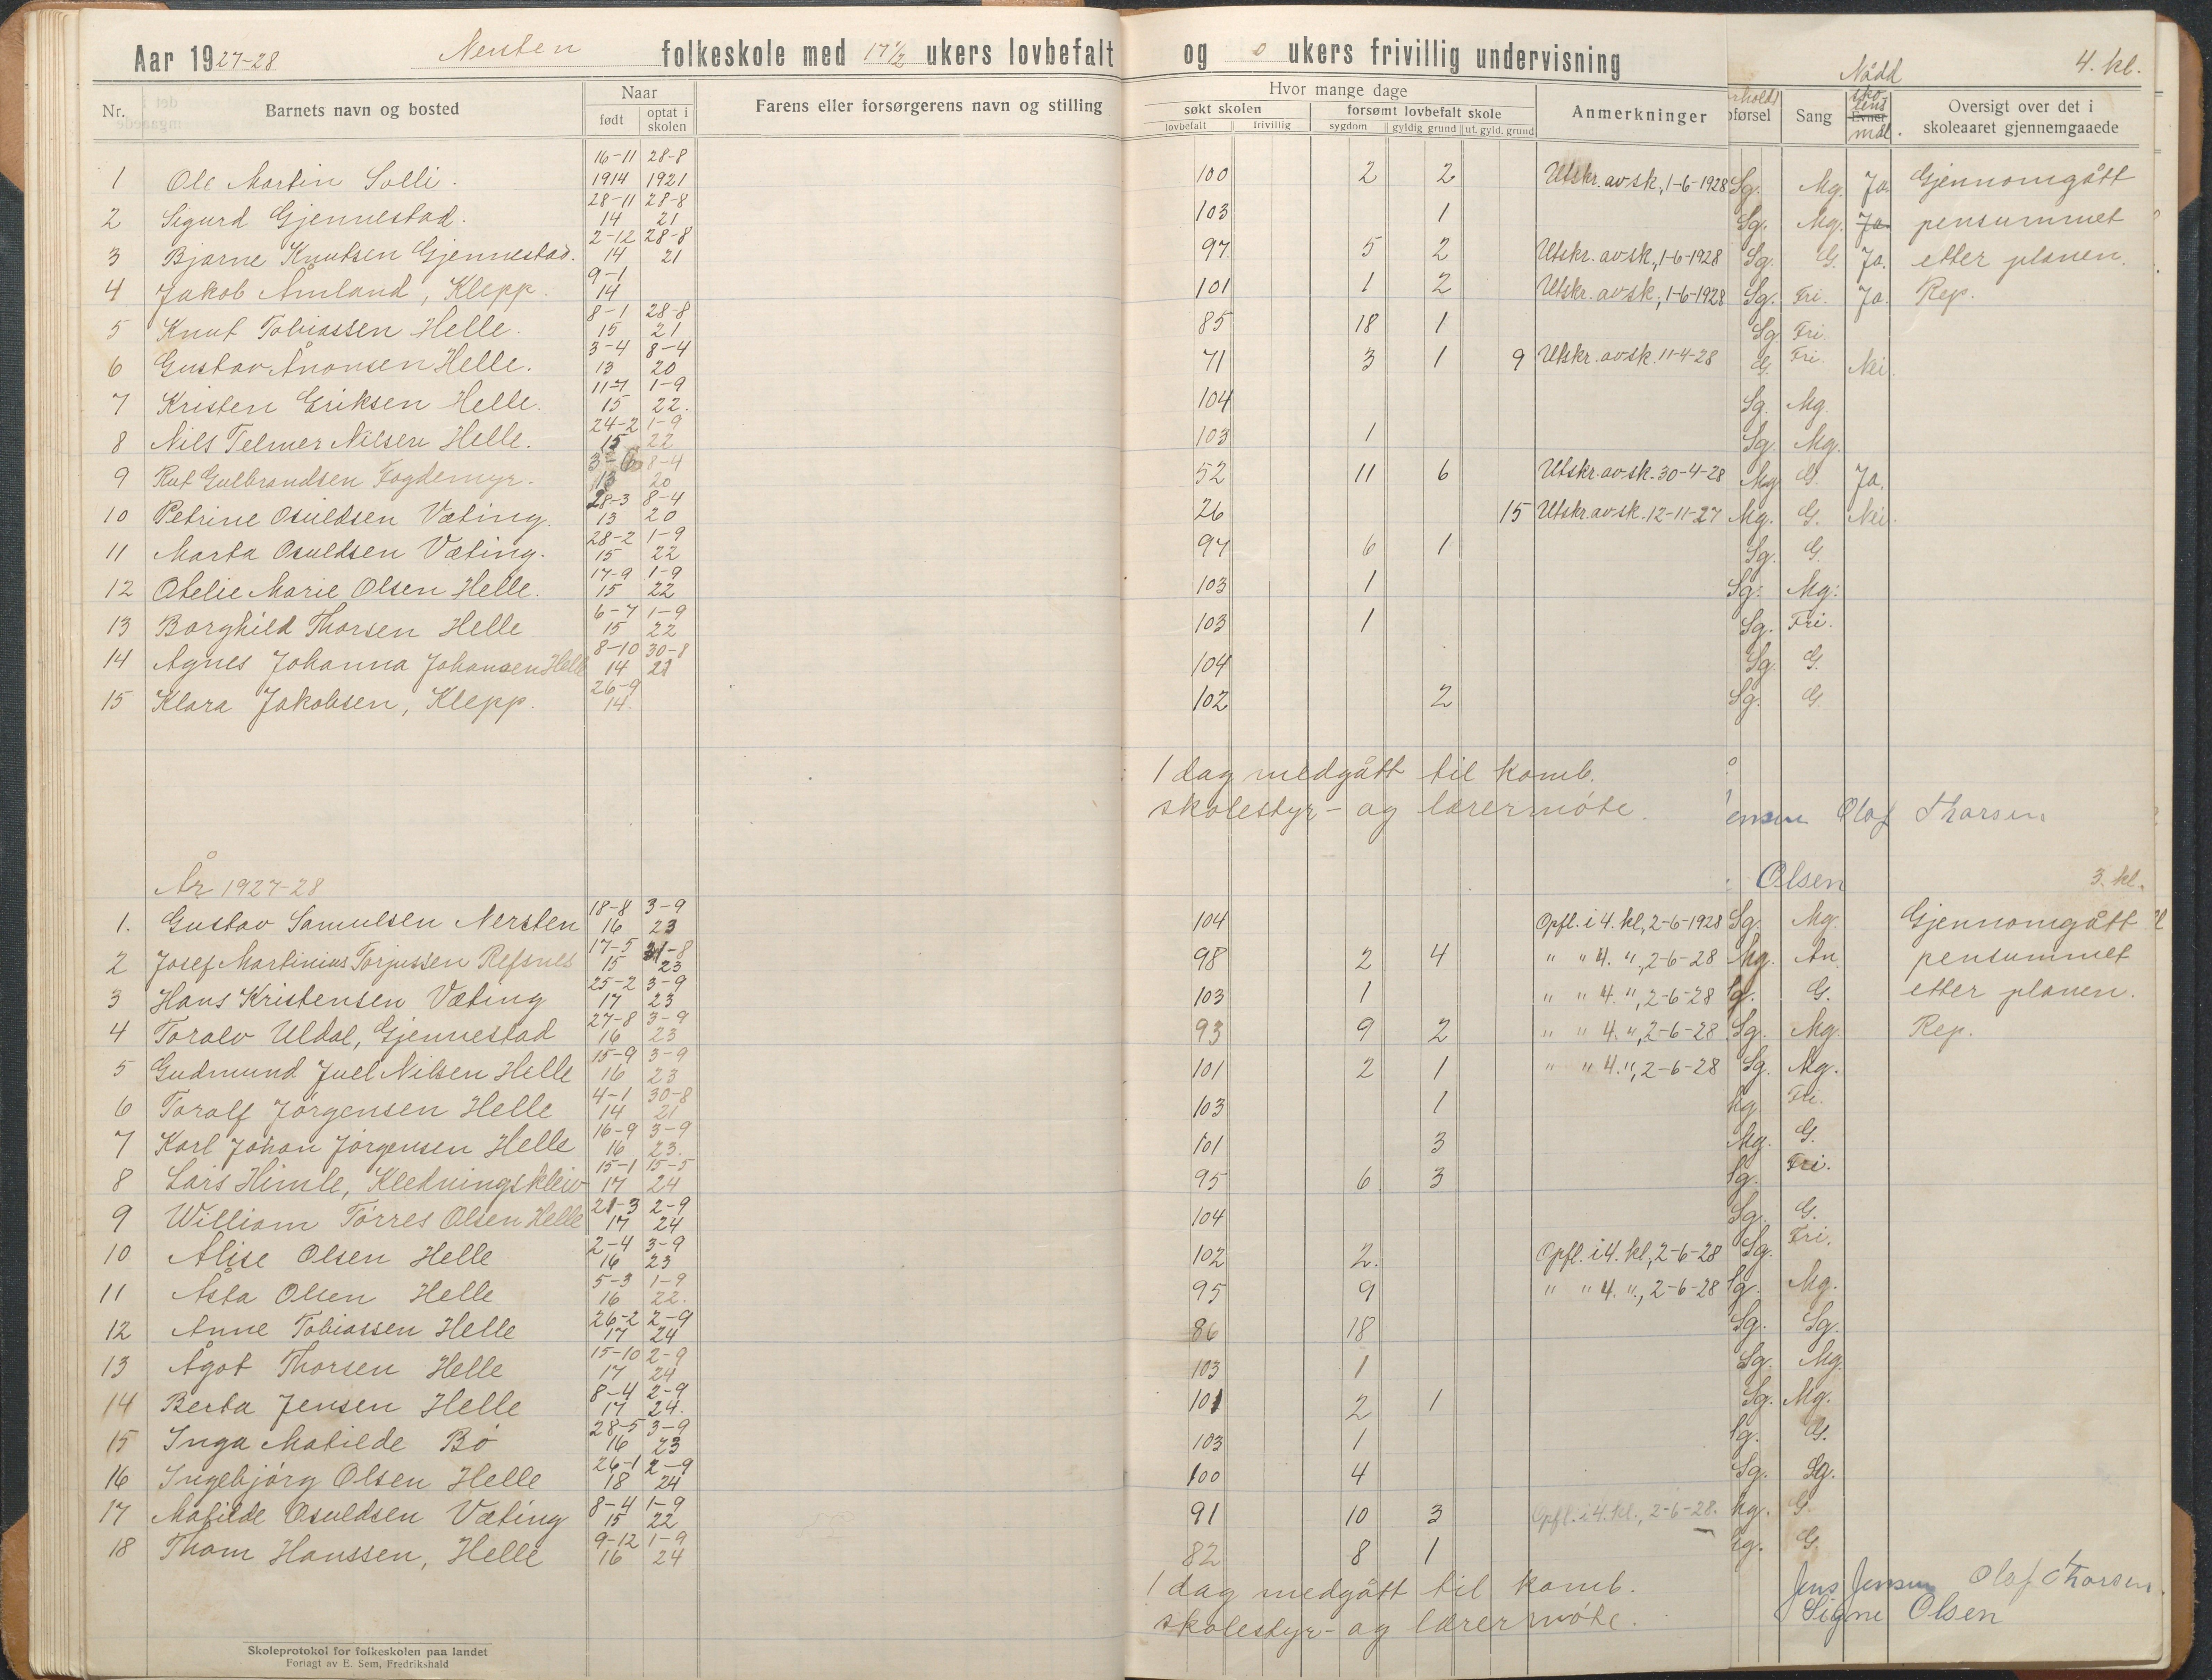 Aar 1927-28 Nersten folkeskole med 17 1/2 ukers lovbefalt og 0 ukers frivillig undervisning
4. kl.
Nådd
Nr. Barnets navn og bosted Naar født optat i skolen Farens eller forsørgerens navn og stilling Hvor mange dage søkt skolen lovbefalt frivillig forsømt lovbefalt skole sygdom gyldig grund ut. gyld. grund Anmerkninger førsel Sang skolens Evner mål. Oversigt over det i skoleaaret gjennemgaaede
1 Ole Martin Solli. 16-11 1914 28-8 1921 100 2 2 Utskr. av sk., 1-6-1928 Sg. Mg. Ja. Gjennomgått
2 Sigurd Gjennestad. 28-11 14 28-8 21 103 1 Sg. Mg. Ja pensummet
3 Bjarne Knutsen Gjennestad. 2-12 14 28-8 21 97 5 2 Utskr. av sk., 1-6-1928 Sg. G. Ja. etter planen.
4 Jakob Åmland, Klepp. 9-1 14 101 1 2 Utskr. av sk., 1-6-1928 Sg. Fri. Ja. Rep.
5 Knut Tobiassen Helle. 8-1 15 28-8 21 85 18 1 Sg Fri.
6 Gustav Ånonsen Helle. 3-4 13 8-4 20 71 3 1 9 Utskr. av sk. 11-4-28 G. Fri. Nei.
7 Kristen Eriksen Helle. 11-7 15 1-9 22. 104 Sg. Mg.
8 Nils Telmer Nilsen Helle. 24-2 15 1-9 22 103 1 Sg. Mg.
9 Rut Gulbrandsen Fogdemyr. 3-6 13 8-4 20 52 11 6 Utskr. av sk. 30-4-28 Mg G. Ja.
10 Petrine Osuldsen Væting. 28-3 13 8-4 20 26 15 Utskr. av sk. 12-11-27 Mg. G. Nei.
11 Marta Osuldsen Væting. 28-2 15 1-9 22 97 6 1 Sg. G.
12 Otelie Marie Olsen Helle. 17-9 15 1-9 22 103 1 Sg. Mg.
13 Borghild Thorsen Helle 6-7 15 1-9 22 103 1 Sg. Fri.
14 Agnes Johanna Johansen Helle 8-10 14 30-8 21 104 Sg. G.
15 Klara Jakobsen, Klepp. 26-9 14. 102 2 Sg. G
1 dag medgått til komb.
skolestyr- og lærermöte. ensen Olaf Thorsen
Olsen
År 1927-28 3. kl.
1. Gustav Samulsen Nersten 18-8 16 3-9 23 104 Opfl. i 4. kl, 2-6-1928 Sg. Mg. Gjennomgått
2 Josef Martinius Torjussen Refsnes 17-5 15 31-8 23 98 2 4 " " 4. ", 2-6-28 Mg. An. pensummet
3 Hans Kristensen Væting 25-2 17 3-9 23 103 1 " " 4. ", 2-6-28 Sg. G. etter planen.
4 Toralv Uldal, Gjennestad 27-8 16 3-9 23 93 9 2 " " 4. ", 2-6-28 Sg. Mg. Rep.
5 Gudmund Juel Nilsen Helle 15-9 16 3-9 23 101 2 1 " " 4. ", 2-6-28 Sg. Mg.
6 Toralf Jörgensen Helle 4-1 14 30-8 21 103 1 Mg. Fri.
7 Karl Johan Jörgensen Helle 16-9 16 3-9 23. 101 3 Mg. G.
8 Lars Himle, Kledningskleiv 15-1 17 15-5 24 95 6 3 Sg. Fri.
9 William Törres Olsen Helle 21-3 17 2-9 24 104 Sg. G.
10 Alise Olsen Helle 2-4 16 3-9 23 102 2. Opfl. i 4. kl., 2-6-28 Sg. Fri.
11 Åsta Olsen Helle 5-3 16 1-9 22. 95 9 " " 4. ", 2-6-28 Sg. Mg.
12 Anne Tobiassen Helle 26-2 17 2-9 24 86 18 Sg. Sg.
13 Ågot Thorsen Helle 15-10 17 2-9 24 103 1 Sg. Mg
14 Berta Jensen Helle 8-4 17 2-9 24. 101 2 1 Sg. Mg.
15 Inga Matilde Bö 28-5 16 3-9 23 103 1 Sg. G.
16 Ingebjörg Olsen Helle 26-1 18 2-9 24 100 4 Sg. Sg.
17 Matilde Osuldsen Væting 8-4 15 1-9 22 91 10 3 Opfl. i 4. kl., 2-6-28. Mg. G.
18 Thom Hanssen, Helle 9-12 16 1-9 24 82 8 1 Mg. G.
1 dag medgått til komb. Jens Jensen Olaf Thorsen.
skolestyr- og lærermöte. Signe Olsen
Skoleprotokol for folkeskolen paa landet
Forlagt av E. Sem, Fredrikshald